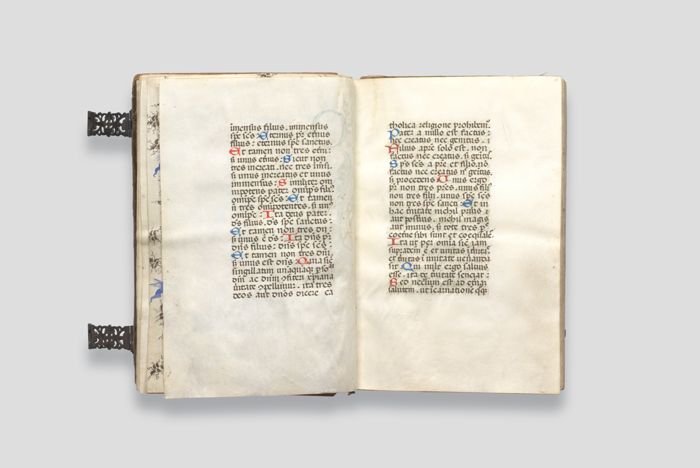 imensus filius. immensus
sps scs. Eternus pr eternus
filius: eternus sps sanctus.
Et tamen non tres etni:
sz unus etnus: Sicut non
tres increati. nec tres imsi.
sz unus increatus et unus
immensus: Similiter om
nipotens pater omips fili
omips sps scs: Et tamen
non tres omipotentes. sz un
omips: Ita deus pater:
ds filius. ds sps sanctus:
Et tamen non tres dii:
sz unus e ds: Ita dns pr
dns filius: dns sps scs:
Et tamen non tres dni
sz unus est dns: Quia sic
singillatim unaquaq pso
ac dnm xpiana
uitate opellimur. ita tres
deos aut dnos dicere ca
tholica religione prohibem.
Pater a nullo est factus:
nec creatus nec genitus:
Filius a pre solo est. non
factus nec creatus. sz genitus
Sps scs a pre et filio. no
factus nec creatus n genitus.
sz procedens: Unus ergo
pr non tres pres. unus fili
non tres filii. unus sps scs
non tres sps sancti: Et in
hac trinitate nichil prius
aut posterius. nichil maius
aut minus. sz tote tres p
coetne sibi sunt et coequales.
Ita ut per omia sic iam
supradem e et unitas i
et trinitas i unitate ueneranda
sit: Qui uult ergo saluus
esse. ita de trinitate senciat:
Sed necessium est ad etnam
salutem. ut icarnatione qq